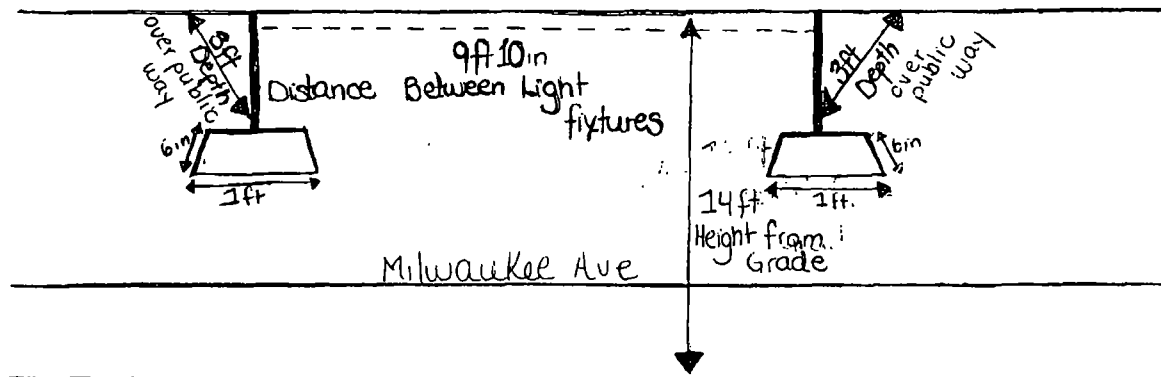 3ft
Depth
over public
way
9ft 10in
Distance Between Light
fixtures
3ft
Depth
over
public
way
6in
1ft
6in
1ft.
14ft
Height from
Grade
Milwaukee Ave